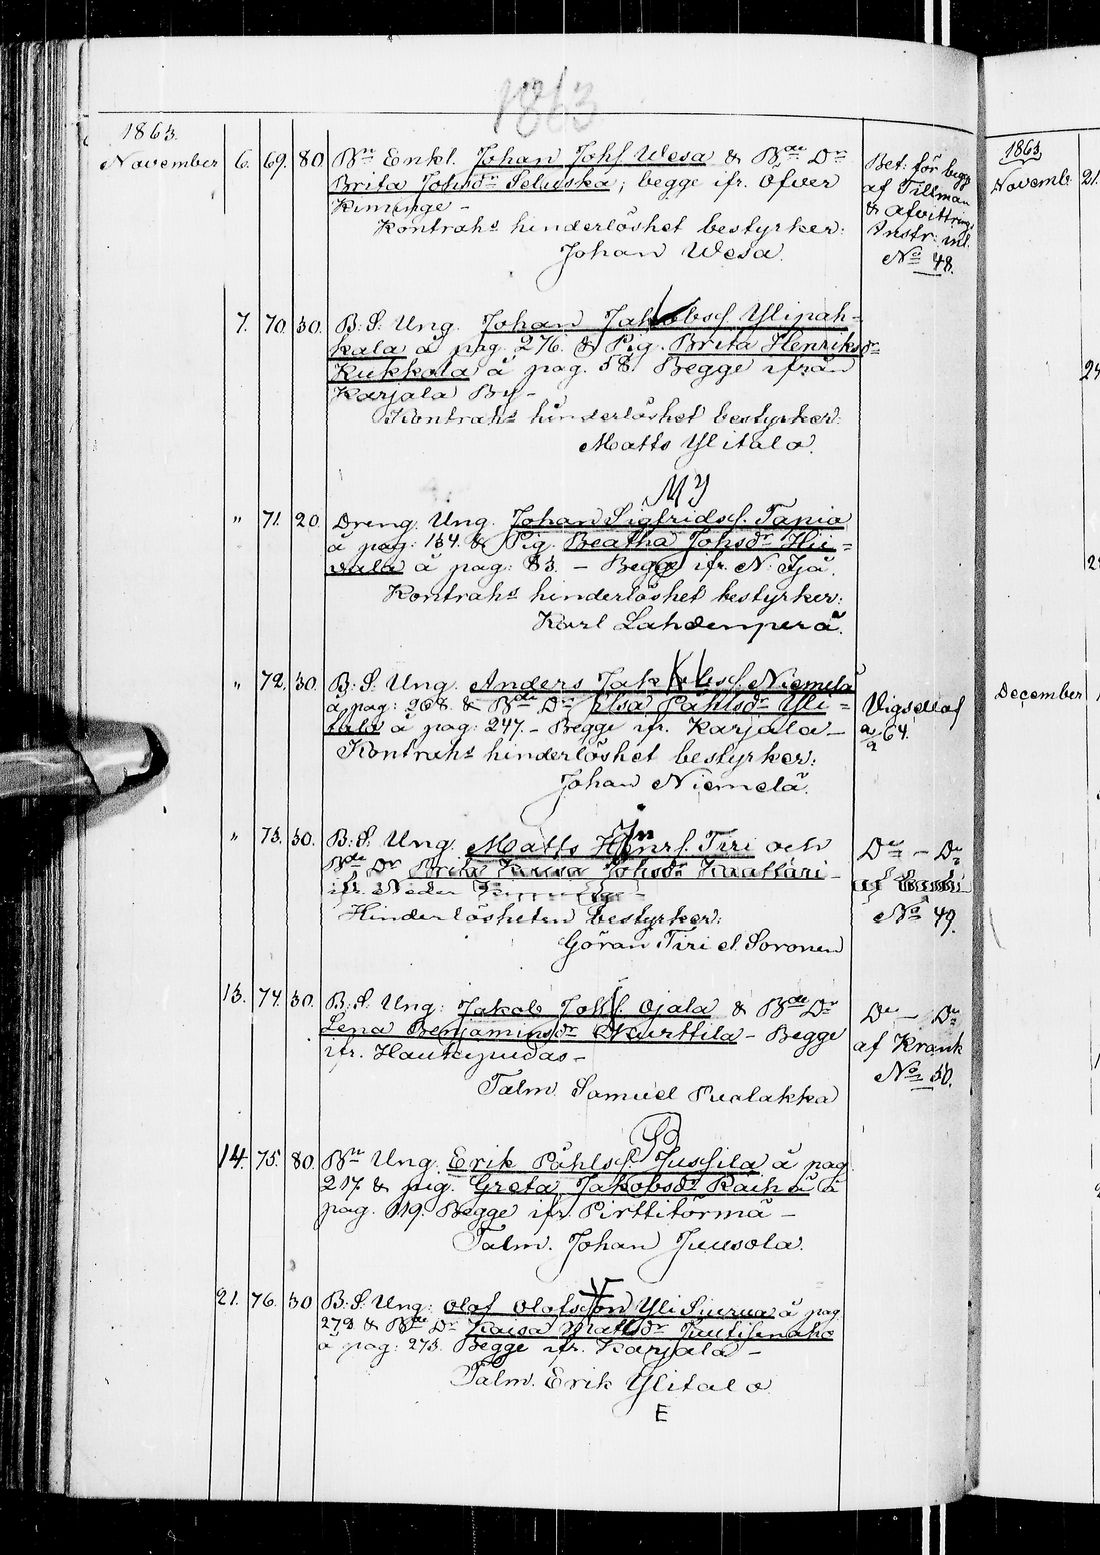 1863
1863.
November 6. 69. 80 Bn Enkl. Johan Johs. Wesa & Bde Dr
Brita Johsdr Peluska; begge ifr. Öfver
Kiminge –
Kontrahs hinderlöshet bestyrker:
Johan Wesa.
Bet: för begge
af Tillman
& afvittrings
Instr: inl.
No 48.
7. 70. 30. B: S: Ung. Johan Jakobss. Ylipah=
kala á pag. 276. & Pig. Brita Henriksdr
Kukkola á pag. 58. Begge ifrån
Karjala By –
Kontrahs hinderlöshet bestyrker:
Matts Ylitalo.
MY
" 71. 20. Dreng. Ung. Johan Sigfridss. Tapio
á pag: 134. & Pig. Beatha Johsdr Hii=
vala á pag: 83. – Begge ifr. N. Ijå.
Kontrahs hinderlöshet bestyrker:
Karl Lahdenperä.
" 72. 30. B: S: Ung. Anders Jakobss. Niemelä
á pag: 268. & Bde Dr Elsa Påhlsdr Yli=
talo á pag: 247. – Begge ifr. Karjala –
Kontrahs hinderlöshet bestyrker:
Johan Niemelä.
Vigsellof
64.
" 73. 30. B: S: Ung. Matts Henrs. Tiri och
Bde Dr Brita Kaisa Johsdr Kaattari –
ifr. Neder
Hinderlösheten bestyrker:
Göran Tiri el. Soronen
Do – Do
af
No 49.
13. 74. 30. B: S: Ung: Jakob Johss. Ojala & Bde Dr
Lena Benjaminsdr Kurttila – Begge
ifr. Haukipudas –
Talm. Samuel Pualakka
Do – Do
af Krank
No 50.
14. 75. 80. Bn Ung. Erik Påhlss. Jussila á pag
217 & pig. Greta Jakobsdr Kaihua á
pag. 119. Begge ifr. Pirttitörmä –
Talm. Johan Juusola.
21. 76. 30 B: S: Ung: Olof Olofsson Yli Siurua á pag
273 & Bde Dr Kaisa Mattsdr
á pag: 273. Begge ifr. Karjala –
Talm. Erik Ylitalo
E
1863
Novemb. 21.
December